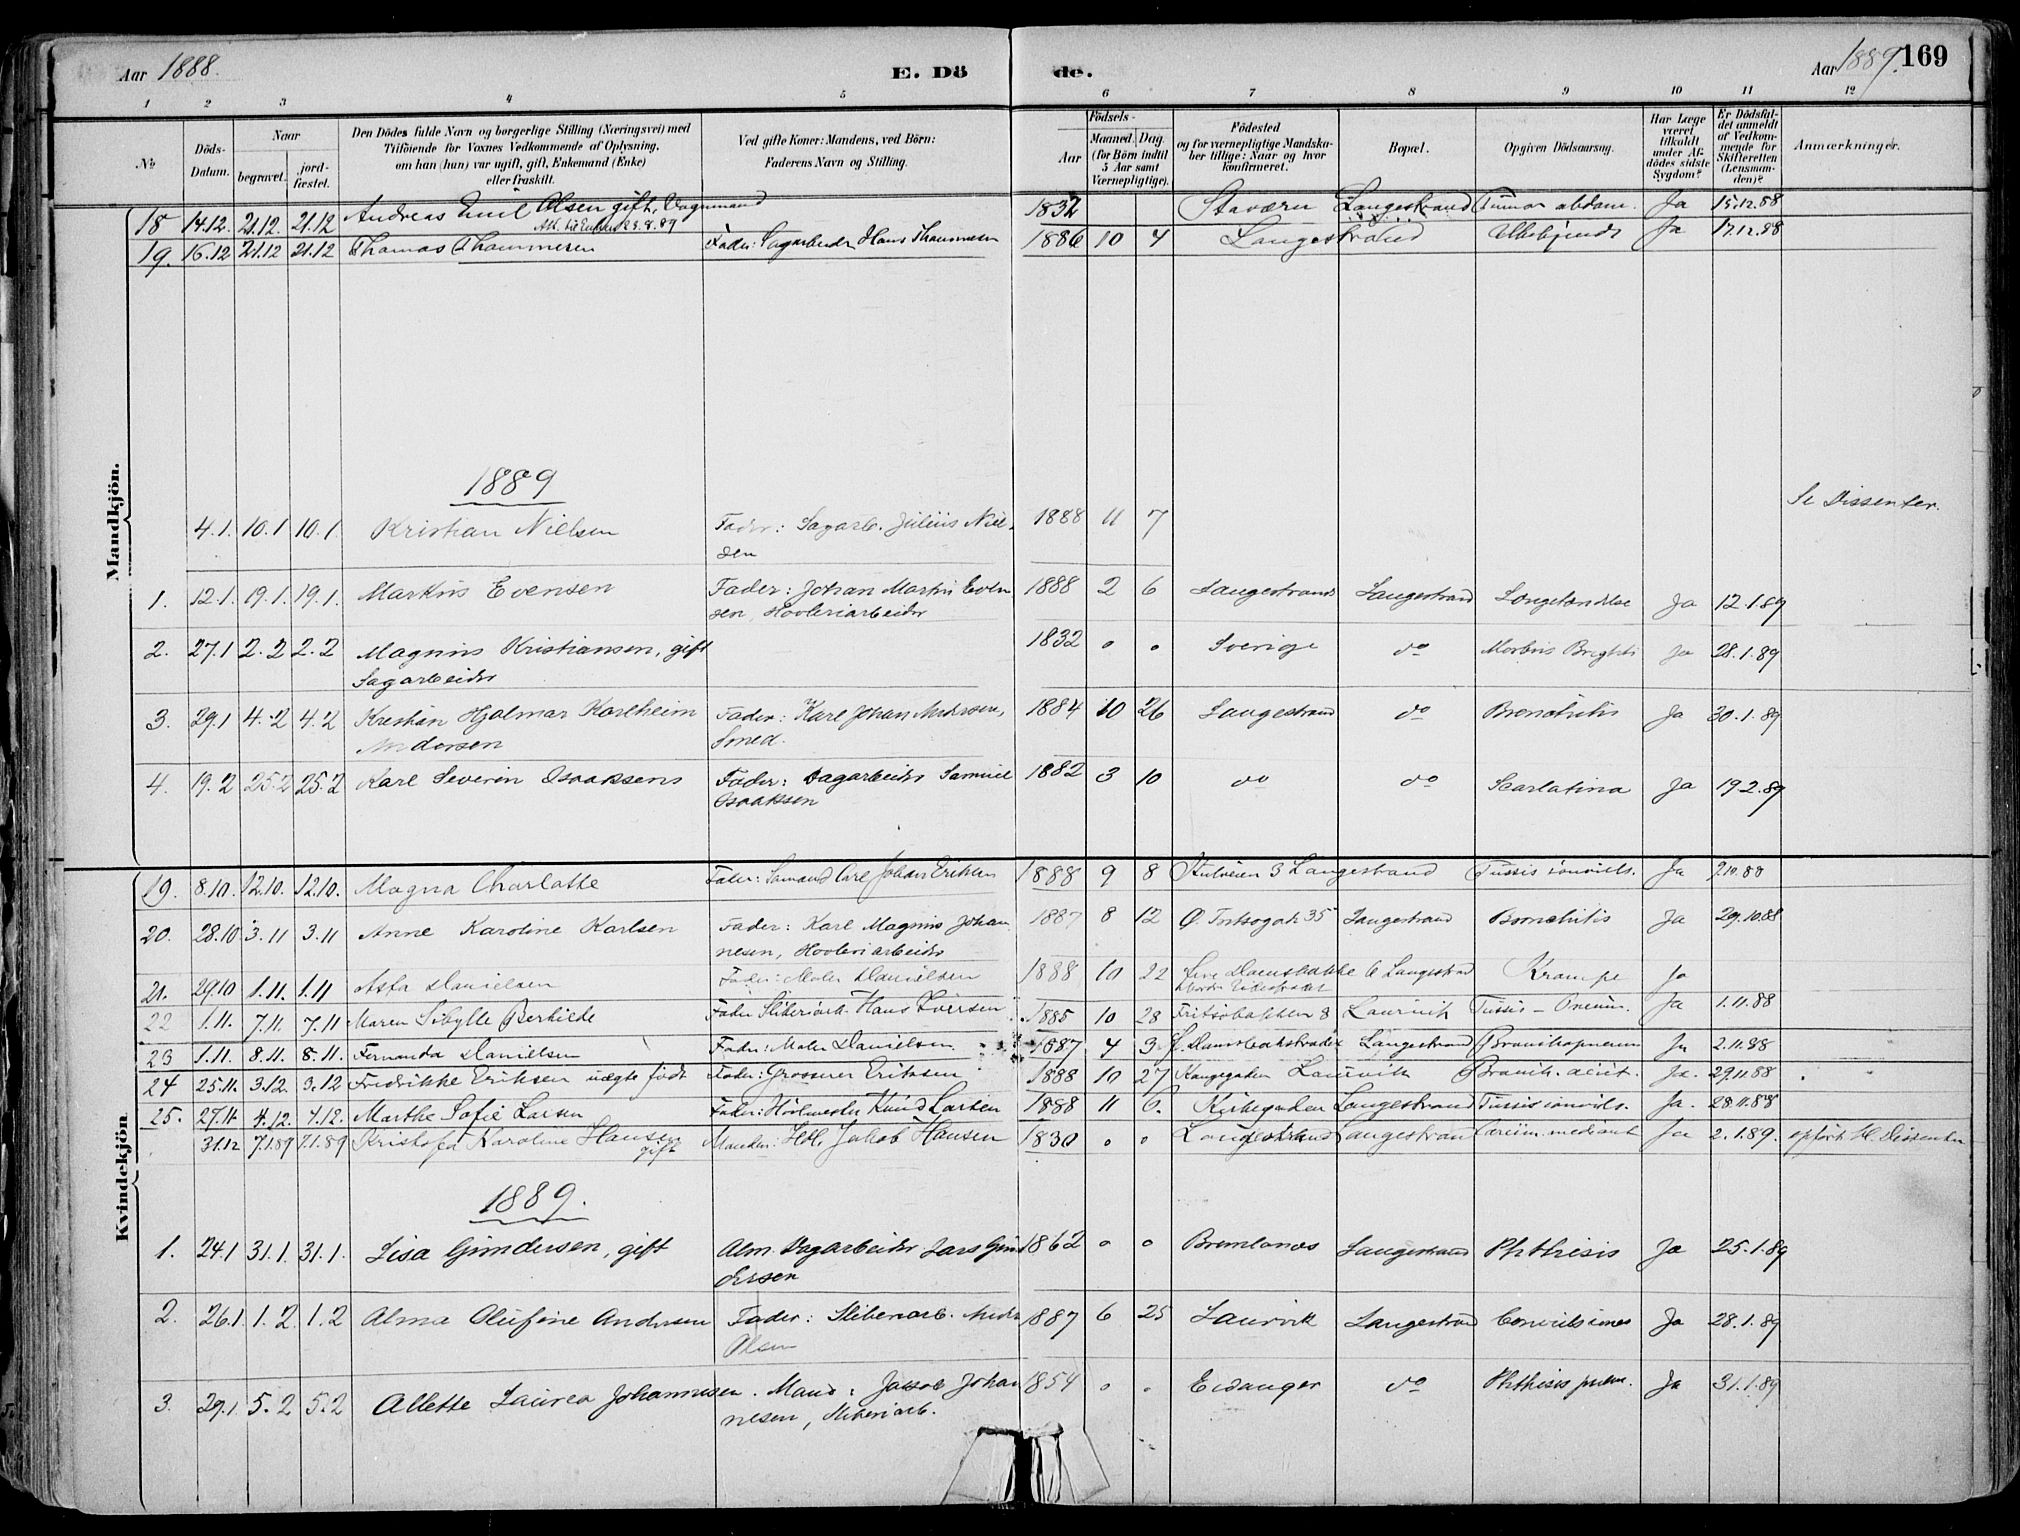 Aar 1888. E. Dö de. Aar 1889. 169
1 2 3 4 5 6 7 8 9 10 11 12
№ Döds-Datum. Naar begravet. jord-fæstet. Den Dödes fulde Navn og borgerlige Stilling (Næringsvei) med Tilföiende for Voxnes Vedkommende af Oplysning, om han (hun) var ugift, gift, Enkemand (Enke) eller fraskilt. Ved gifte Koner: Mandens, ved Börn: Faderens Navn og Stilling. Födsels- Aar Maaned. Dag. (for Börn indtil 5 Aar samt Værnepligtige). Födested og for værnepligtige Mandskaber tillige: Naar og hvor konfirmeret. Bopæl. Opgiven Dödsaarsag. Har Læge været tilkaldt under Afdödes sidste Sygdom? Er Dödsfaldet anmeldt af Vedkommende for Skifteretten (Lensmanden)? Anmærkninger.
Mandkjön.
18 14.12. 21.12. 21.12 Andreas Emil Olsen gift, Vognmand 1832 Staværn Langestrand Tumor abdom. Ja 15.12.88
19. 16.12 21.12 21.12 Thomas Thommesen Fader: Sagarbeider Hans Thommesen 1886 10 4 Langestrand Ja 17.12.88
1889
4.1. 10.1 10.1 Kristian Nielsen Fader: Sagarb. Julius Niel- 1888 11 7 Se Dissenter.
sen
1. 12.1. 19.1. 19.1. Markus Evensen Fader: Johan Martin Even 1888 2 6 Langestrand Langestrand Ja 12.1.89
sen, Hovleriarbeider
2. 27.1 2.2 2.2 Magnus Kristiansen, gift 1832 o o Sverige do Morbus Brightii Ja 28.1.89
Sagarbeider
3. 29.1 4.2 4.2 Kristian Hjalmar Karlheim Fader: Karl Johan Andersen, 1884 10 26 Langestrand do Bronchitis Ja 30.1.89
Andersen Smed.
4. 19.2 25.2 25.2 Karl Severin Isaaksen Fader: Dagarbeider Samuel 1882 3 10 do do Scarlatina Ja 19.2.89
Isaaksen
Kvindekjön
19. 8.10. 12.10. 12.10. Magna Charlotte Fader: Sømand Carl Johan Eriksen 1888 9 8 3 Langestrand Tussis convuls. Ja 2.10.88
20. 28.10 3.11 3.11 Anne Karoline Karlsen Fader: Karl Magnus Johan 1887 8 12 35 Langestrand Bronchitis Ja 29.10.88
nesen, Hovleriarbeider
21. 29.10 1.11. 1.11 Asta Danielsen Fader: Maler Danielsen 1888 10 22 6 Langestrand Krampe Ja
22 1.11. 7.11. 7.11 Maren Sibylle Berhilde Fader Sliberiarb. Hans Iversen 1885 10 28 Fritsøbakken 8 Laurvik Tussis – Ja 1.11.88
23 1.11. 8.11. 8.11. Fernanda Danielsen Fader: Maler Danielsen 1887 4 3 Langestrand Ja 2.11.88
24 25.11. 3.12. 3.12 Fredrikke Eriksen uægte født Fader: Grosserer Eriksen 1888 10 27 Kongegaden Laurvik Bronch. acut. Ja. 29.11.88
25. 27.11 4.12. 4.12. Marthe Sofie Larsen Fader: Knud Larsen 1888 11 6. Kirkegaden Langestrand Tussis convuls. Ja. 28.11.88
31.12 7.1.89 7.1.89 Kristofa Karoline Hansen Manden: Jakob Hansen 1830 o o Langestrand Langestrand Ja 2.1.89. opført Dissenter
gift
1889.
1. 24.1 31.1 31.1. Lisa Gundersen, gift Alm. Dagarbeider Lars Gun 1862 o o Brunlanes Langestrand Phthisis Ja 25.1.89
dersen
2. 26.1 1.2 1.2 Alma Olufine Andersen Fader: Sliberiarb. Anders 1887 6 25 Laurvik Langestrand Convulsiones Ja 28.1.89
Olsen
3. 29.1 5.2 5.2 Allette Laurea Johannesen. Mand: Jakob Johan 1854 o o Eidanger do Phthisis pulm. Ja 31.1.89
nesen, Sliberiarb.